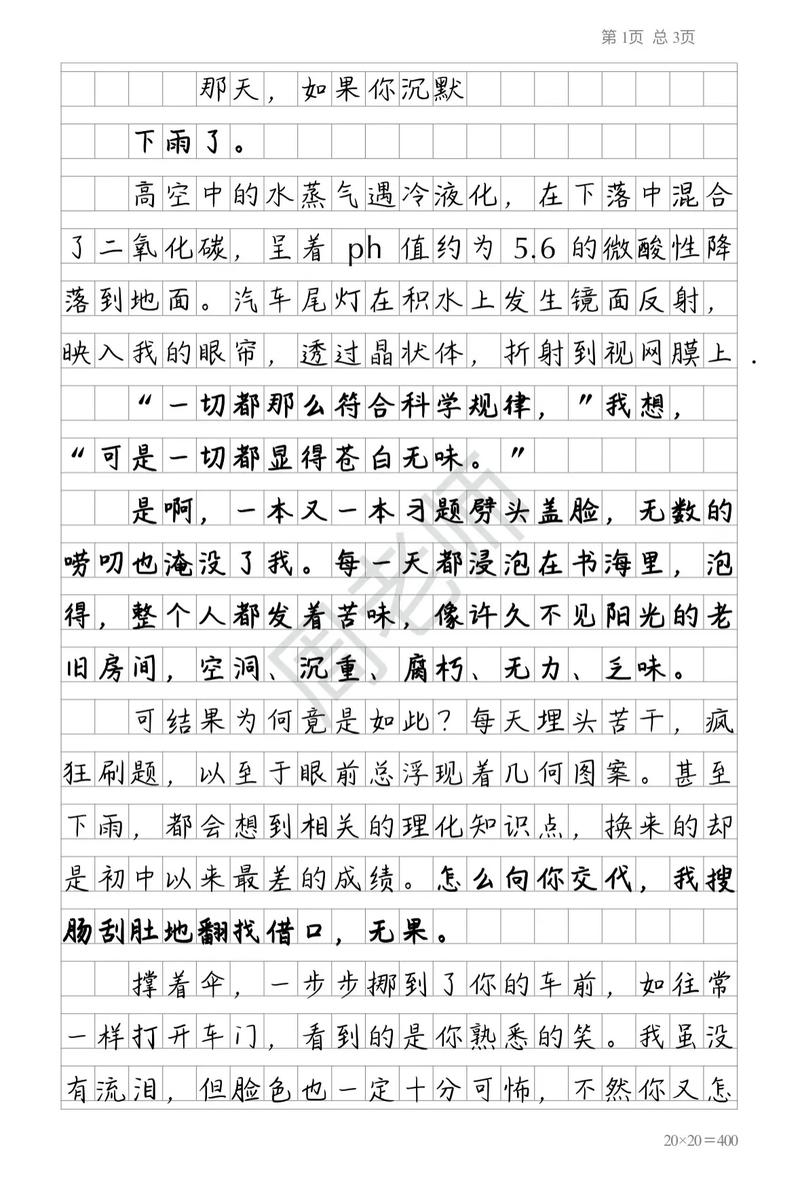 第1页 总3页
那天，如果你沉默
下雨了。
高空中的水蒸气遇冷液化，在下落中混合
了二氧化碳，呈着 ph 值约为 5.6 的微酸性降
落到地面。汽车尾灯在积水上发生镜面反射，
映入我的眼帘，透过晶状体，折射到视网膜上.
“一切都那么符合科学规律，”我想，
“可是一切都显得苍白无味。”
是啊，一本又一本习题劈头盖脸，无数的
唠叨也淹没了我。每一天都浸泡在书海里，泡
得，整个人都发着苦味，像许久不见阳光的老
旧房间，空洞、沉重、腐朽、无力、乏味。
可结果为何竟是如此？每天埋头苦干，疯
狂刷题，以至于眼前总浮现着几何图案。甚至
下雨，都会想到相关的理化知识点，换来的却
是初中以来最差的成绩。怎么向你交代，我搜
肠刮肚地翻找借口，无果。
撑着伞，一步步挪到了你的车前，如往常
一样打开车门，看到的是你熟悉的笑。我虽没
有流泪，但脸色也一定十分可怖，不然你又怎
20×20=400
周老师